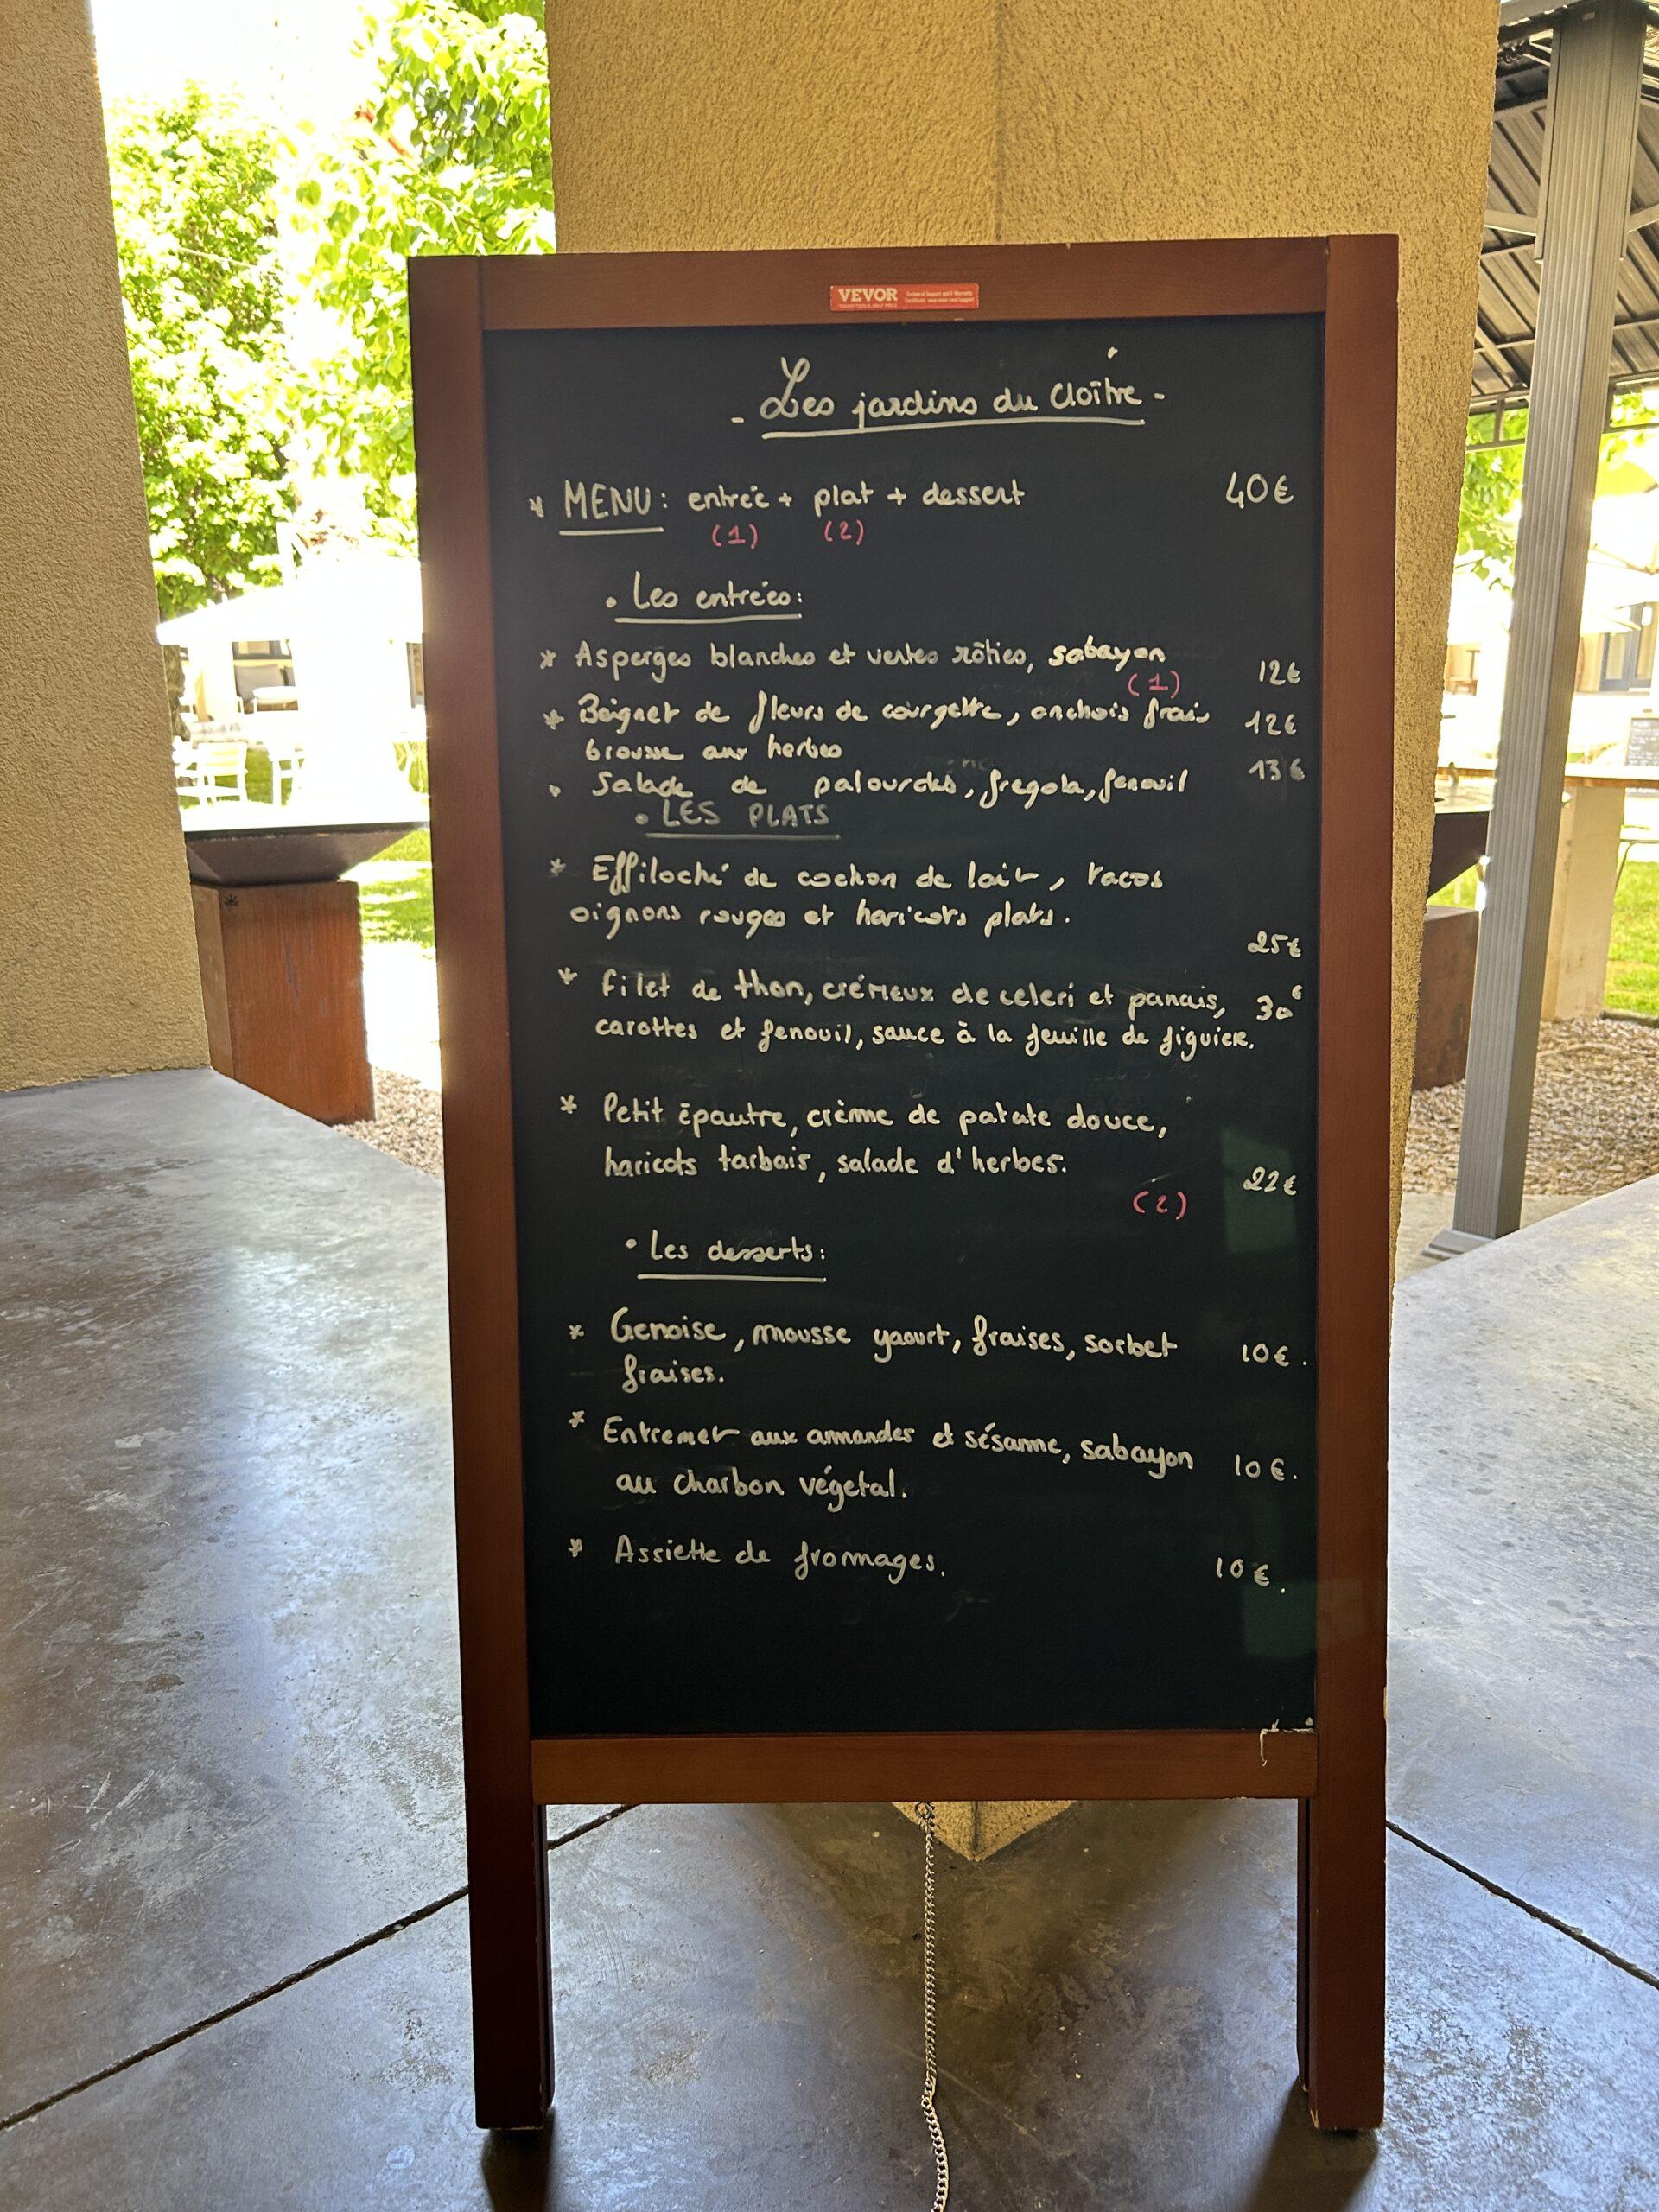 VEVOR
TOUGH TOOLS, HALF PRICE
Technical Support and E-Warranty
Certificate www.vevor.com/support
- Les jardins du Cloître -
* MENU : entrée + plat + dessert 40€
(1) (2)
• Les entrées :
* Asperges blanches et vertes rôties, sabayon 12€
(1)
* Beignet de fleurs de courgette, anchois frais 12€
brousse aux herbes
• Salade de palourdes, fregola, fenouil 13€
• LES PLATS
* Effiloché de cochon de lait, tacos
oignons rouges et haricots plats.
25€
* filet de thon, crémeux de celeri et panais, 30€
carottes et fenouil, sauce à la feuille de figuier.
* Petit épautre, crème de patate douce,
haricots tarbais, salade d'herbes.
22€
(2)
• Les desserts :
* Genoise, mousse yaourt, fraises, sorbet 10€.
fraises.
* Entremet aux amandes et sésame, sabayon 10€.
au charbon végetal.
* Assiette de fromages. 10€.